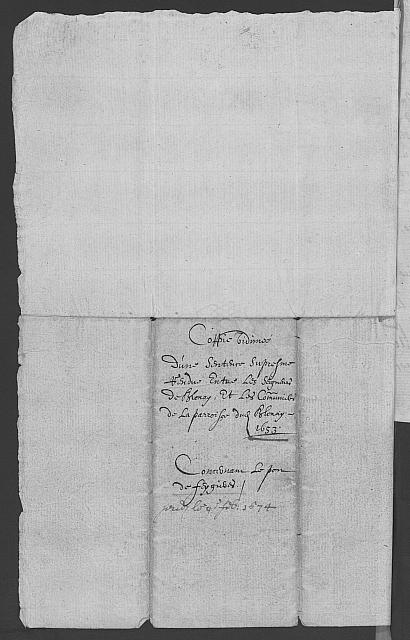 Coppie Vidimee
D'une Sentence Supresme
Rendue Entre Les Seigneurs
de Blonay, Et Les Communes
de La parroisse dud. Blonay
1653
Concernant Le
de
le 9e feb. 1674